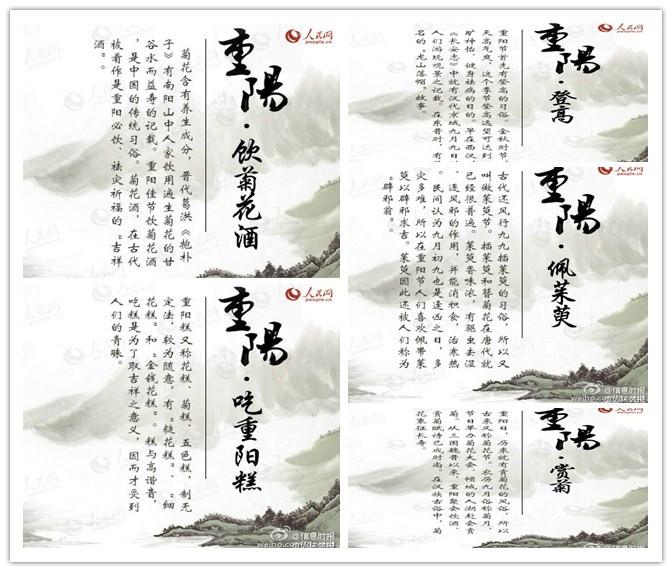 人民网
people.cn
重陽·饮菊花酒
菊花含有养生成分，晋代葛洪《抱朴
子》有南阳山中人家饮用遍生菊花的甘
谷水而益寿的记载。重阳佳节饮菊花酒
，是中国的传统习俗。菊花酒，在古代
被看作是重阳必饮、祛灾祈福的“吉祥
酒”。
人民网
people.cn
重陽·登高
重阳节首先有登高的习俗。金秋时节，
天高气爽，这个季节登高远望可达到
旷神怡、健身祛病的目的。早在西汉，
《长安志》中就有汉代京城九月九日
人们游玩观景之记载。在东晋时，有
名的“龙山落帽”故事。
人民网
people.cn
重陽·佩茱萸
古代还风行九九插茱萸的习俗，所以又
叫做茱萸节。插茱萸和簪菊花在唐代就
已经很普遍。茱萸香味浓，有驱虫去湿
、逐风邪的作用，并能消积食，治寒热
。民间认为九月初九也是逢凶之日，多
灾多难，所以在重阳节人们喜欢佩带茱
萸以辟邪求吉。茱萸因此还被人们称为
“辟邪翁”。
@信息时报
人民网
people.cn
重陽·吃重阳糕
重阳糕又称花糕、菊糕、五色糕，制无
定法，较为随意，有“糙花糕”、“细
花糕”和“金钱花糕”。糕与高谐音，
吃糕是为了取吉祥之意义，因而才受到
人们的青睐。
@信息时报
人民网
重陽·赏菊
重阳日，历来就有赏菊花的风俗，所以
古来又称菊花节。农历九月俗称菊月，
节日举办菊花大会，倾城的人潮赴会赏
菊。从三国魏晋以来，重阳聚会饮酒、
赏菊赋诗已成时尚。在汉族古俗中，菊
花象征长寿。
@信息时报